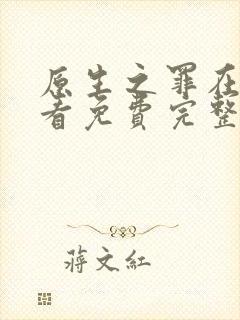 原生之罪在
看免费完整
蒋文红